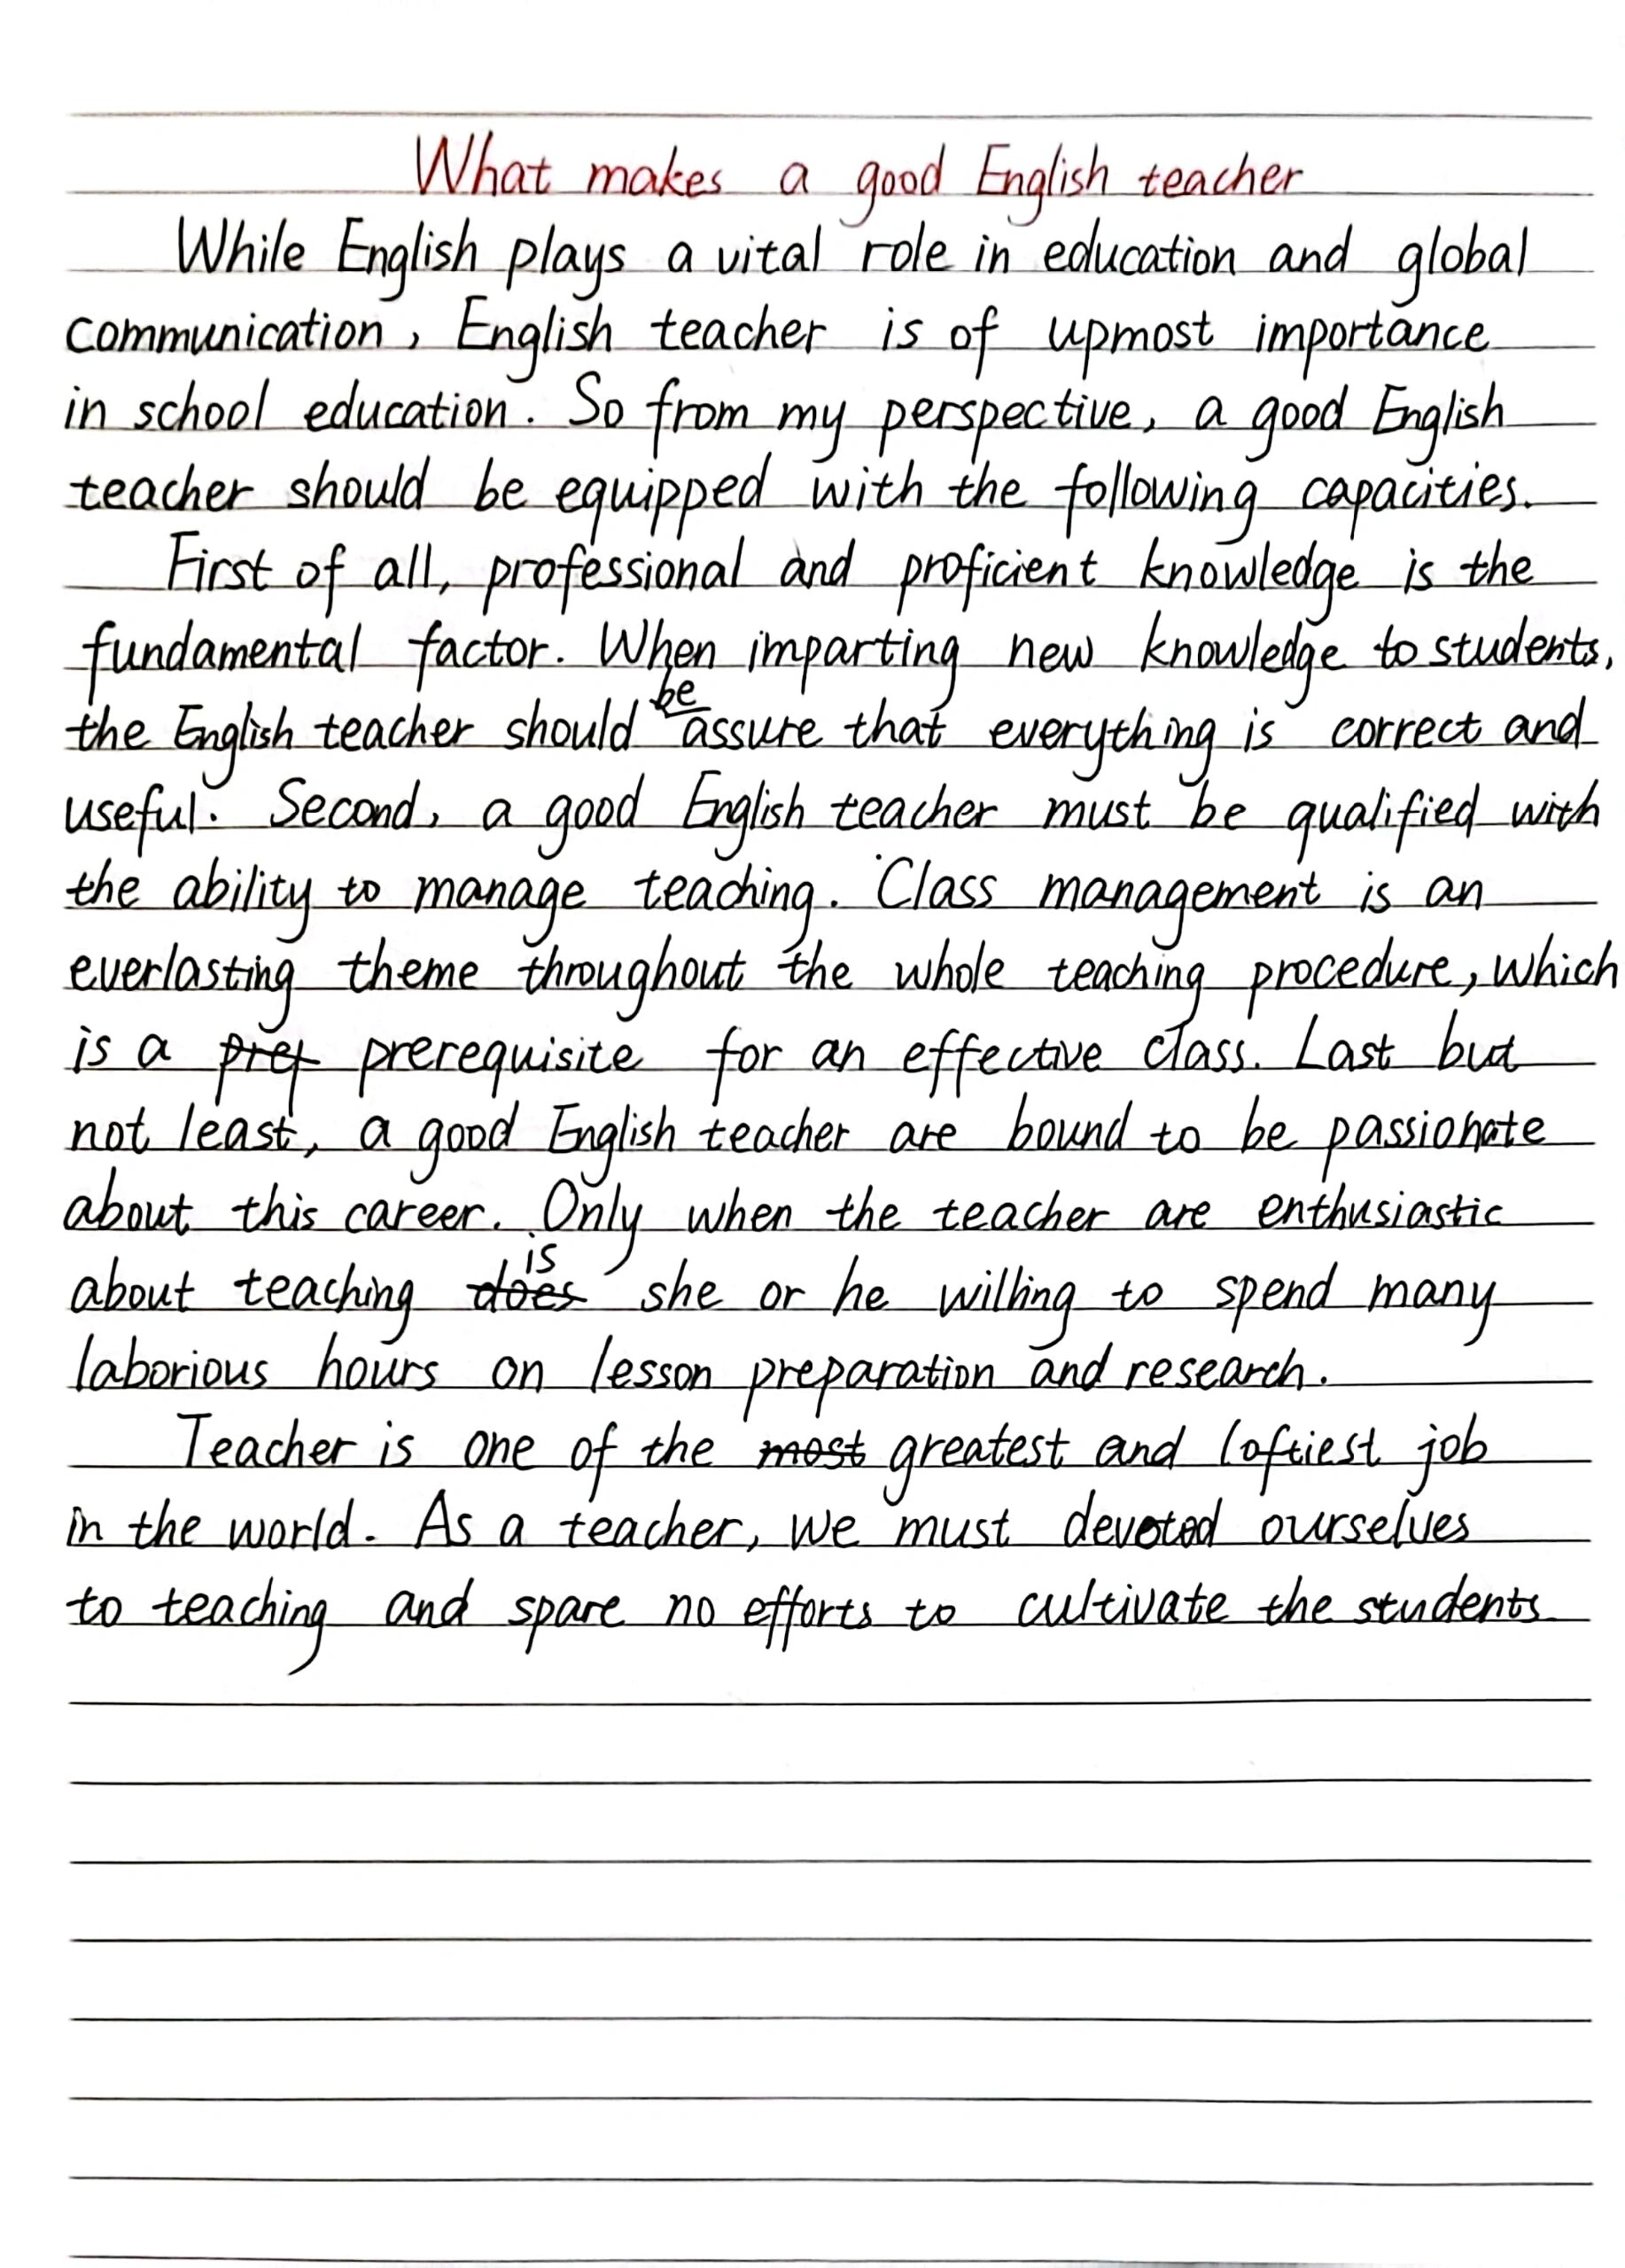 What makes a good English teacher
While English plays a vital role in education and global
communication, English teacher is of upmost importance
in school education. So from my perspective, a good English
teacher should be equipped with the following capacities.
First of all, professional and proficient knowledge is the
fundamental factor. When imparting new knowledge to students,
the English teacher should be assure that everything is correct and
useful. Second, a good English teacher must be qualified with
the ability to manage teaching. Class management is an
everlasting theme throughout the whole teaching procedure, which
is a prerequisite for an effective class. Last but
not least, a good English teacher are bound to be passionate
about this career. Only when the teacher are enthusiastic
about teaching is she or he willing to spend many
laborious hours on lesson preparation and research.
Teacher is one of the greatest and loftiest job
in the world. As a teacher, we must devoted ourselves
to teaching and spare no efforts to cultivate the students